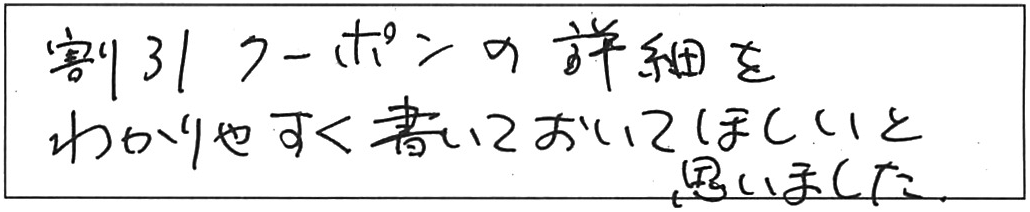 割り引クーポンの詳細を
わかりやすく書いておいてほしいと
思いました.